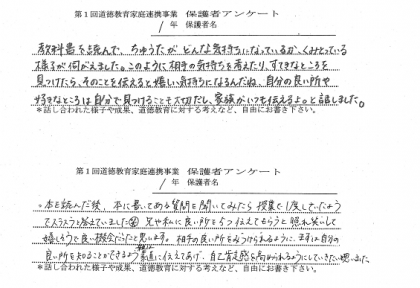 第1回道徳教育家庭連携事業 保護者アンケート
1年 保護者名
教科書を読んで、ちゅうたがどんな気持ちになっているか、くみとっている
様子が伺がえました。このように相手の気持ちを考えたり、すてきなところを
見つけたら、そのことを伝えると嬉しい気持ちになるんだね。自分の良い所や
好きなところは自分で見つけることも大切だし、家族がいつも伝えるよ。と話しました。
*話し合われた様子や成果、道徳教育に対する考えなど、自由にお書き下さい。
第1回道徳教育家庭連携事業 保護者アンケート
1年 保護者名
・本を読んだ後、本に書いてある質問を聞いてみたら授業で1度していたよう
でスラスラと答えていました 兄や私に良い所を5つ伝えてもらうと照れ笑いして
嬉しそうで良い機会だったと思います。相手の良い所をみつけられるように、まずは自分の
良い所を知ることができるよう素直に伝えてあげ、自己肯定感を高められるようにしていきたい思いました
*話し合われた様子や成果、道徳教育に対する考えなど、自由にお書き下さい。